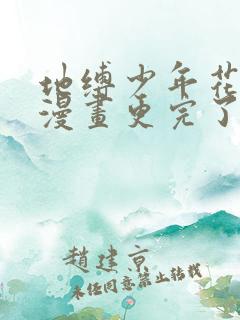 地缚少年花
漫畫更完了
趙建京
未经同意禁止转载